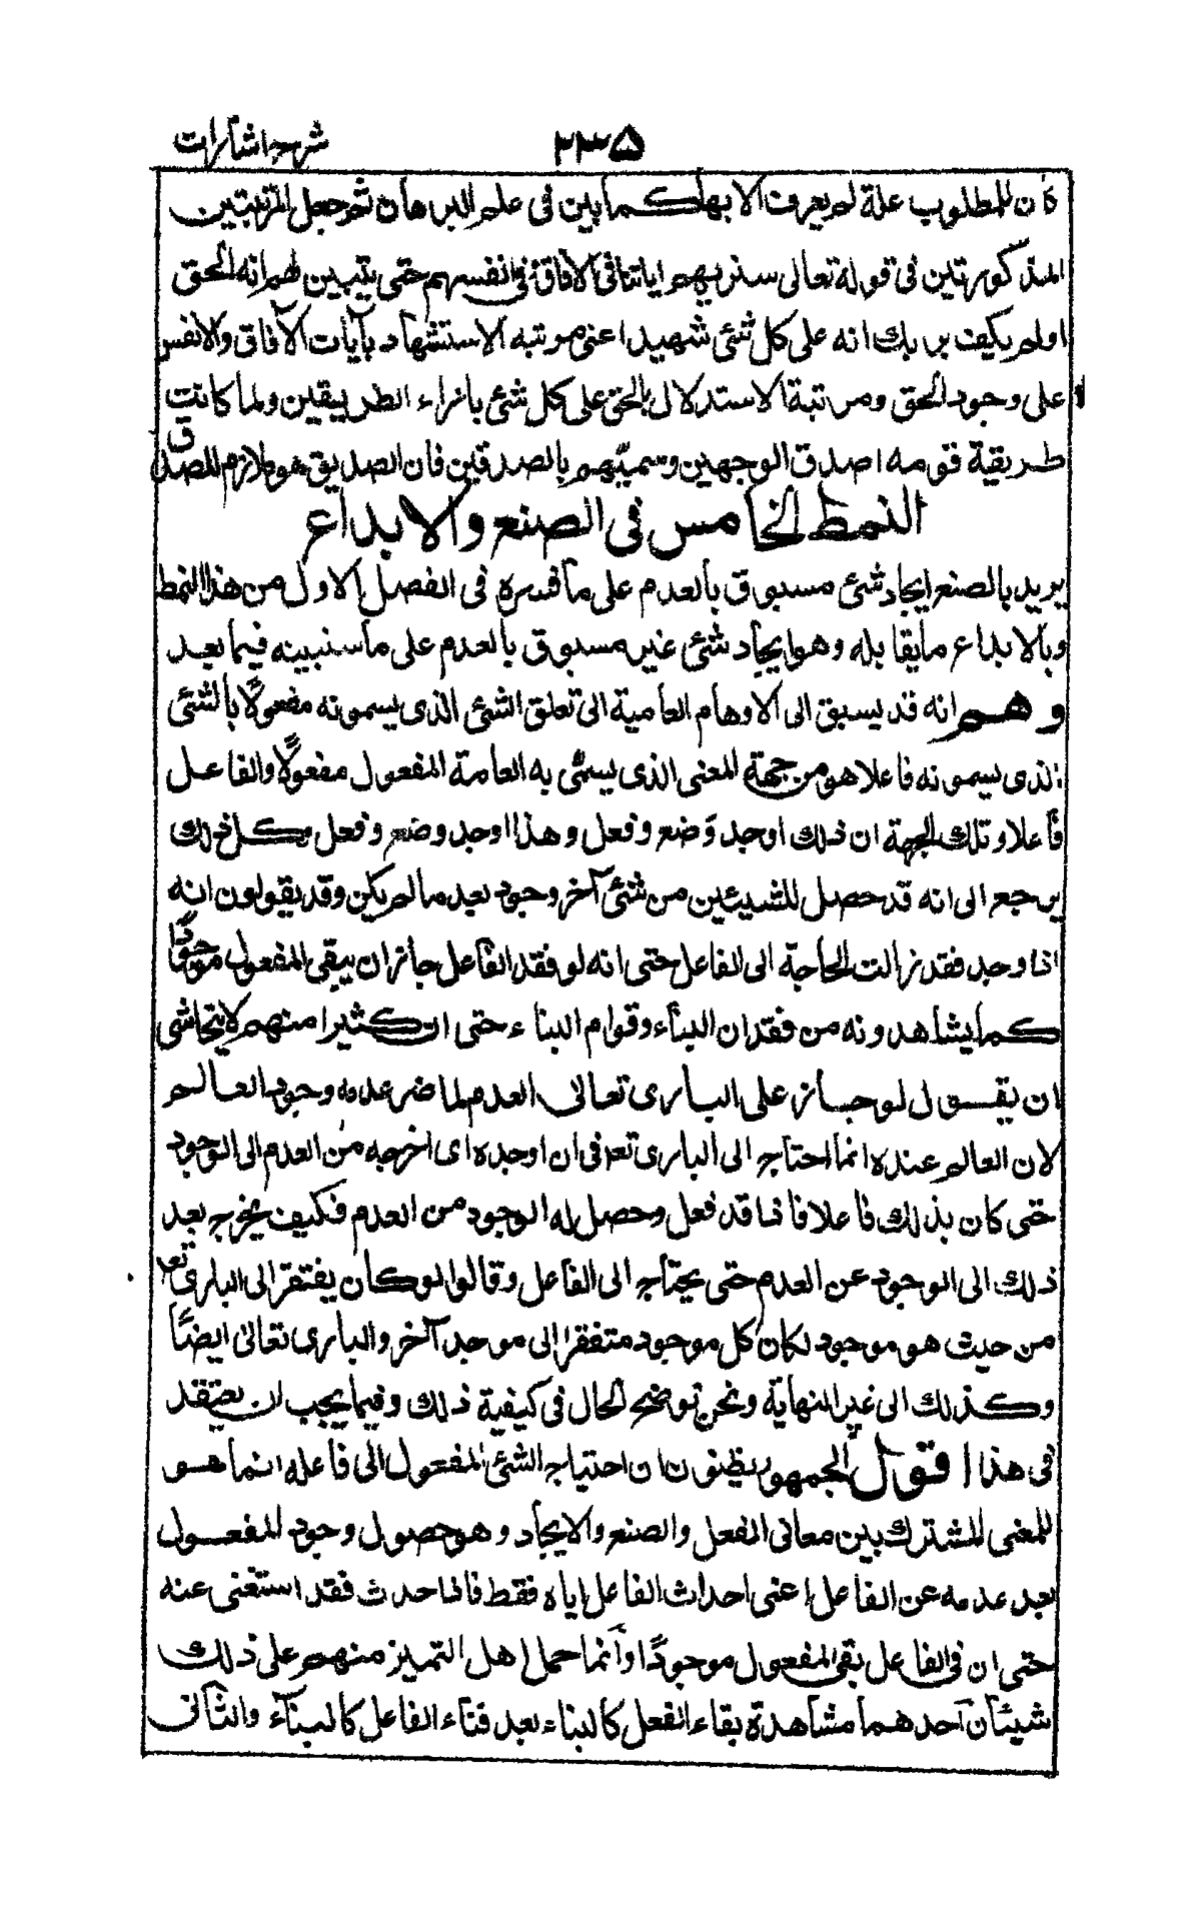 شرح اشارات
۲۳۵
كان للمطلوب علة لم يعرف الا بها كما بين فى علم البرهان ثم جعل المرتبتين
المذكورتين فى قوله تعالى سنريهم اياتنا فى الآفاق وفى انفسهم حتى يتبين لهم انه الحق
اولم يكف بربك انه على كل شئ شهيد اعنى مرتبة الاستشهاد بآيات الآفاق والانفس
على وجود الحق ومرتبة الاستدلال بالحق على كل شئ بازاء الطريقين ولما كانت
طريقة قومه اصدق الوجهين وسميهم بالصدقين فان الصديق هو ملازم للصدق
النمط الخامس فى الصنع والابداع
يريد بالصنع ايجاد شئ مسبوق بالعدم على ما فسره فى الفصل الاول من هذا النمط
وبالابداع ما يقابله وهو ايجاد شئ غير مسبوق بالعدم على ما سنبينه فيما بعد
وهم انه قد يسبق الى الاوهام العامية الى تعلق الشئ الذى يسمونه مفعولاً بالشئ
الذى يسمونه فاعلا هو من جهة المعنى الذى يسمى به العامة المفعول مفعولاً والفاعل
فاعلا وتلك الجهة ان ذلك اوجد وَضع وفعل وهذا اوجد وضع وفعل وكل ذلك
يرجع الى انه قد حصل للشيئين من شئ آخر وجود بعد ما لم يكن وقد يقولون انه
اذا وجد فقد زالت الحاجة الى الفاعل حتى انه لو فقد الفاعل جاز ان يبقى المفعول موجودًا
كما يشاهدونه من فقدان البناء وقوام البناء حتى ان كثيرا منهم لا يتحاشى
ان يقول لو جاز على البارى تعالى العدم لما ضر عدمه وجود العالم
لان العالم عنده انما احتاج الى البارى تعم فى ان اوجده اى اخرجه من العدم الى الوجود
حتى كان بذلك فاعلا فاذا قد فعل وحصل له الوجود من العدم فكيف يخرج بعد
ذلك الى الوجود عن العدم حتى يحتاج الى الفاعل وقالوا لو كان يفتقر الى البارى تعم
من حيث هو موجود لكان كل موجود متفقرا الى موجد آخر والبارى تعالى ايضاً
وكذلك الى غير النهاية ونحن نوضح الحال فى كيفية ذلك وفيما يجب ان يعتقد
فى هذا اقول الجمهور يظنون ان احتياج الشئ المفعول الى فاعله انما هو
للمعنى المشترك بين معانى الفعل والصنع والايجاد وهو حصول وجود المفعول
بعد عدمه عن الفاعل اعنى احداث الفاعل اياه فقط فاذا احدث فقد استغنى عنه
حتى ان فنى الفاعل بقى المفعول موجودًا وأنما حمل اهل التميز منهم على ذلك
شيئان آحدهما مشاهدة بقاء الفعل كالبناء بعد فناء الفاعل كالبناء والثانى